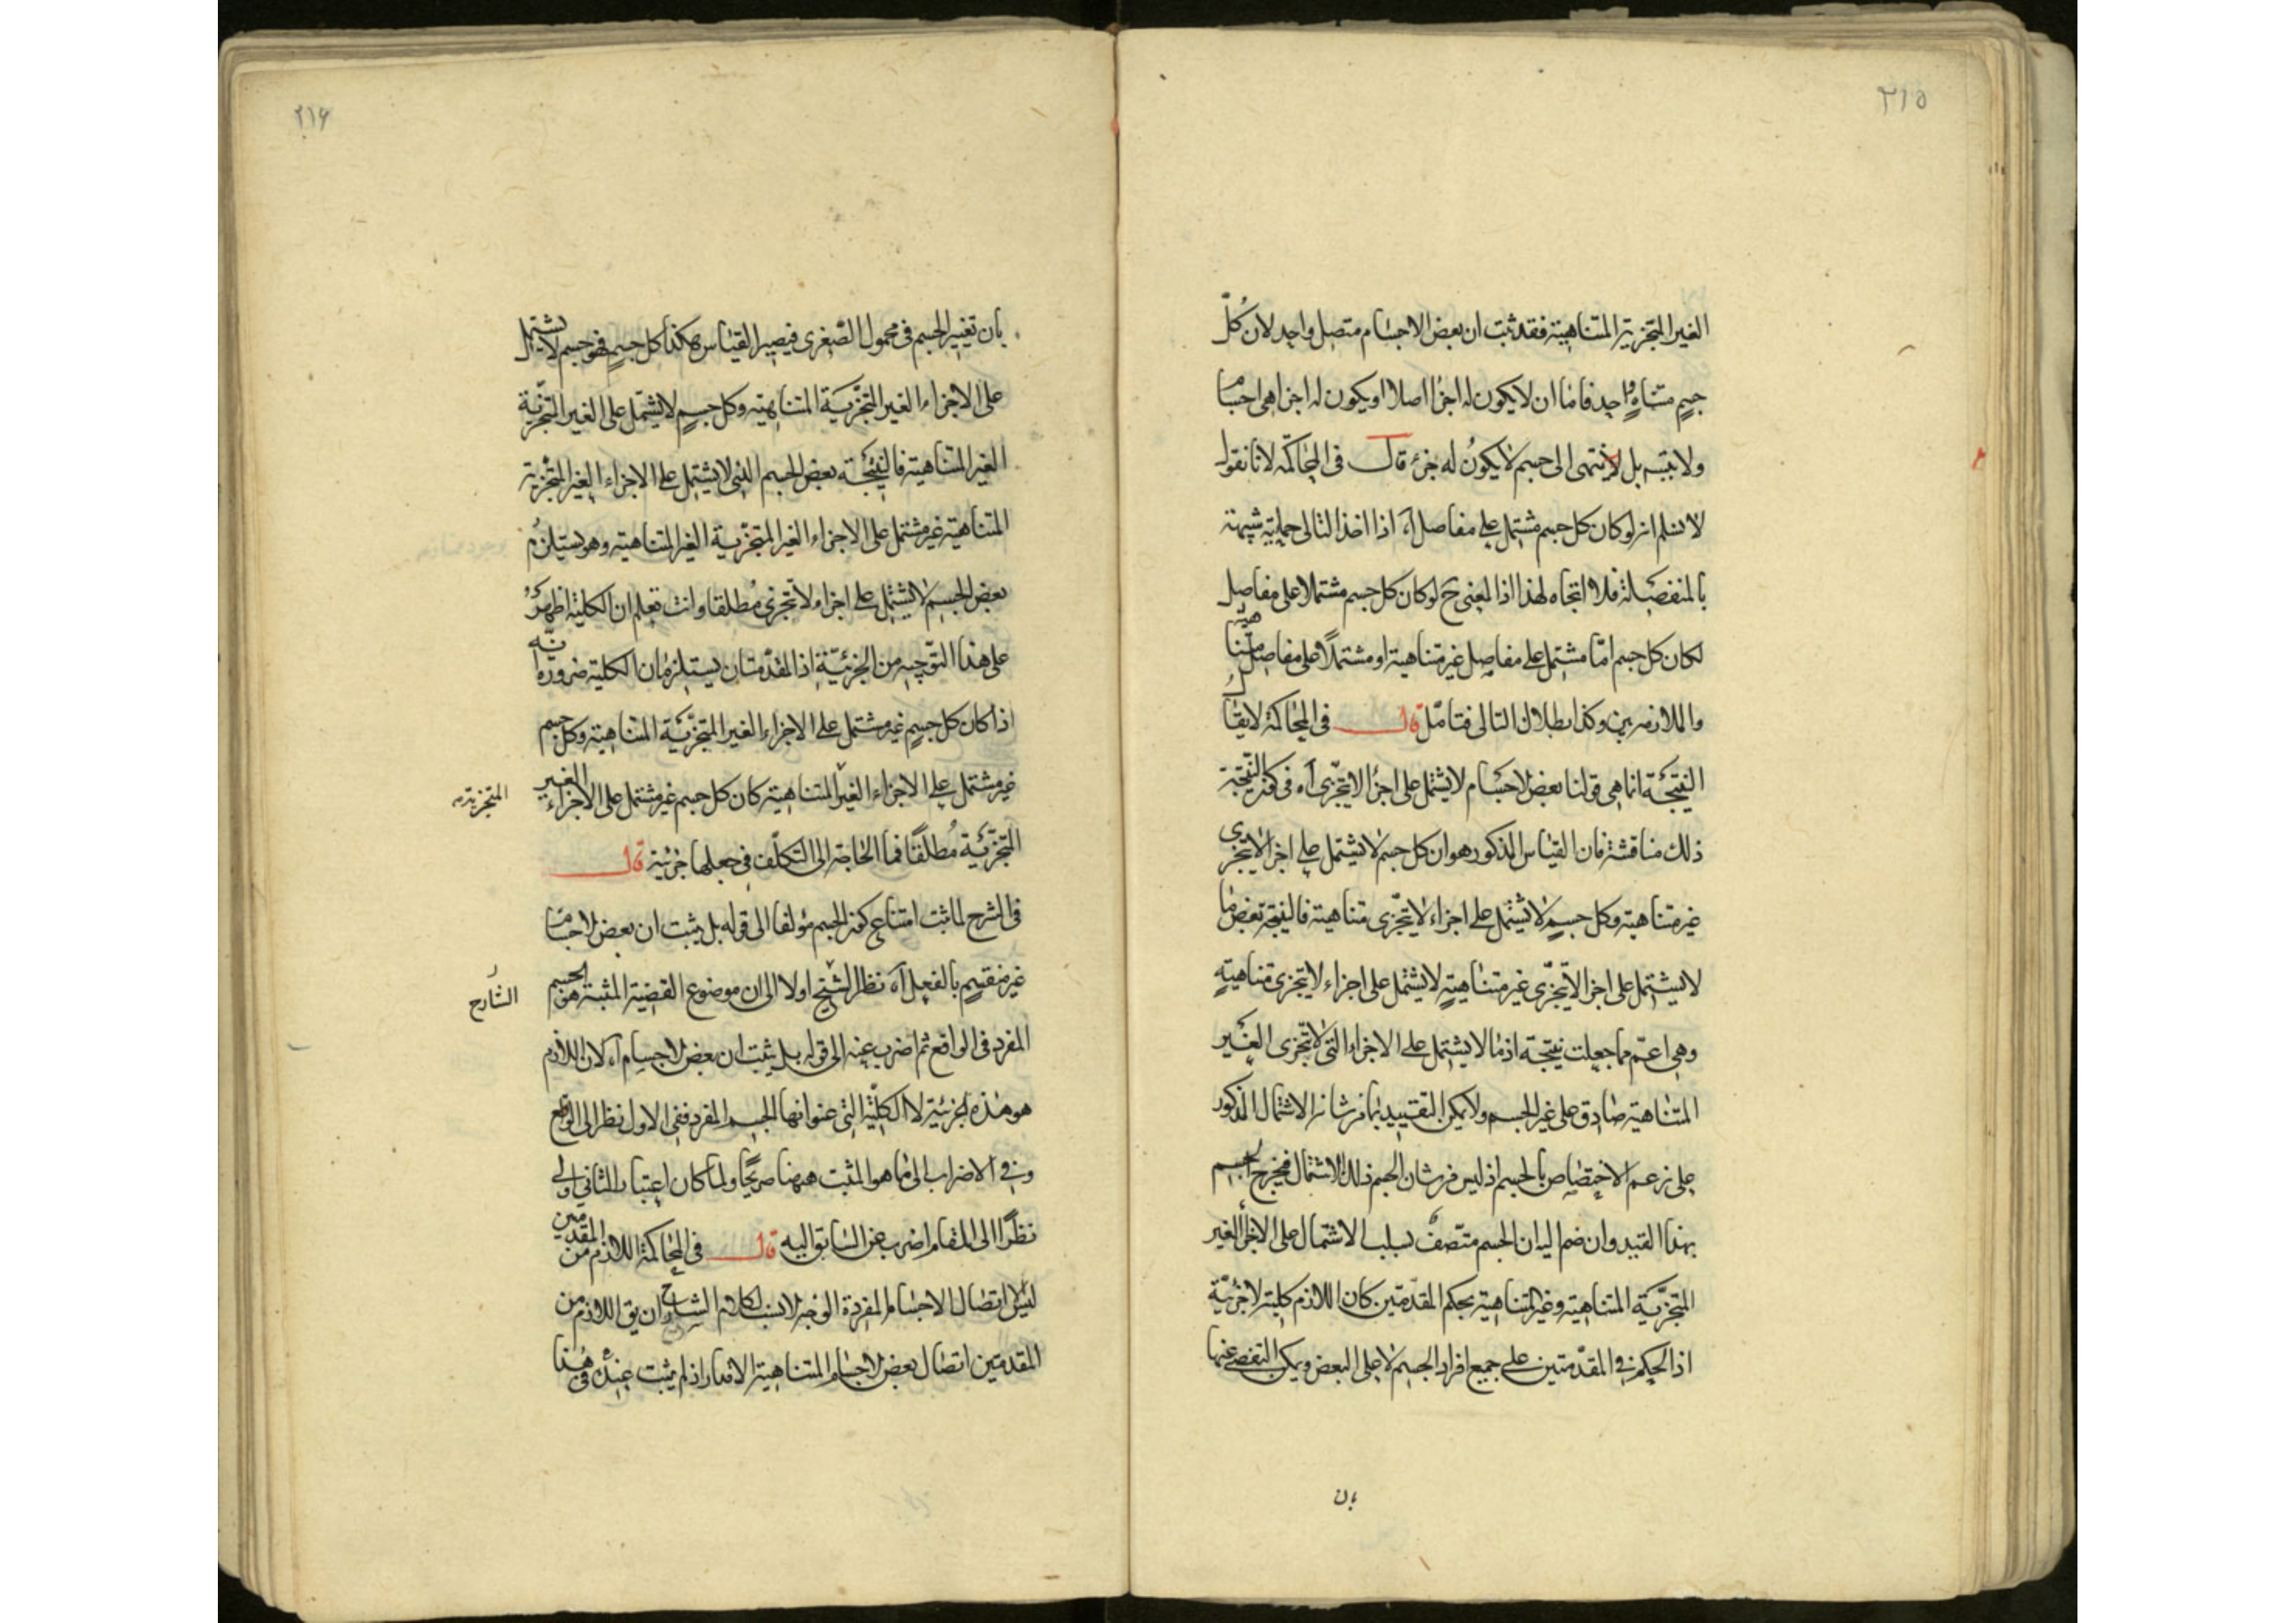 ٢١٥
الغير المتجزية المتناهية فقد ثبت ان بعض الاجسام متصل واحد لان كلّ
جسمٍ متناهٍ واحد فاما ان لا يكون له اجزا اصلا او يكون له اجزا هي اجسا ما
ولا يتسه بل لا ينتهى الى جسم لا يكونُ له جزء قال فى المحاكمة لانا نقول
لا نسلم انه لو كان كل جسم مشتمل على مفاصل آه اذا اخذ التالى حملية شبيهة
بالمنفصلة فلا اتجاه لهذا اذ المعنى ح لو كان كل جسم مشتملا على مفاصل
لكان كل جسم امّا مشتمل على مفاصل غير متناهية او مشتملاً على مفاصل متناهية
والملازمه بين وكذا بطلان التالى فتامّل قال فى المحاكمة لا يقال
النتيجة انما هى قولنا بعض الاجسام لا يشتمل على اجزا لا يتجزى آه فى كون النتيجة
ذلك مناقشة فان القياس المذكور هو ان كل جسم لا يشتمل على اجزا لا يتجزى
غير متناهية وكل جسمٍ لا يشتمل على اجزاء لا يتجزى متناهية فالنتيجة بعض ما
لا يشتمل على اجزا لا يتجزّى غير متناهيةٍ لا يشتمل على اجزاء لا يتجزى متناهيةٍ
وهى اعمّ مما جعلت نتيجة اذ ما لا يشتمل على الاجزاء التى لا تتجزى الغير
المتناهية صادق على غير الجسم ولا يمكن التقييد بما من شانه الاشتمال المذكور
على زعم الاختصاص بالجسم اذ ليس من شان الجسم ذلك الاشتمال فيخرج الجسم
بهذا القيد وان ضم اليه ان الجسم متّصفٌ بسلب الاشتمال على الاجزاء الغير
المتجزّية المتناهية وغير المتناهية بحكم المقدّمتين كان اللازم كلية لا جزئيّة
اذ الحكم فى المقدّمتين على جميع افراد الجسم لا على البعض ويمكن التفصى عنها
بان
٢١٦
بان تغيير الجسم فى محمول الصّغرى فيصير القياس هكذا كل جسمٍ فهو جسم لا يشتمل
على الاجزاء الغير المتجزّية المتناهية وكل جسمٍ لا يشتمل على الغير المتجزّية
الغير المتناهية فالنتيجة بعض الجسم الذى لا يشتمل على الاجزاء الغير المتجزية
المتناهية غير مشتمل على الاجزاء الغير المتجزّية الغير المتناهية وهو يستلزم
بعض الجسم لا يشتمل على اجزاء لا تتجزى مُطلقا وانت تعلم ان الكلية اظهر
على هذا التوجيه من الجزئيّة اذ المقدّمتان يستلزمان الكلية ضرورة انّه
اذا كان كل جسمٍ غير مشتمل على الاجزاء الغير المتجزّية المتناهية وكل جسم
غير مشتمل على الاجزاء الغير المتناهية كان كل جسم غير مشتمل على الاجزاء الغير
المتجزية
المتجزّية مُطلقًا فما الحاجة الى التكلّف فى جعلها جزئية قال
فى الشرح لما ثبت امتناع كون الجسم مؤلفا الى قوله بل يثبت ان بعض الاجسا ما
غير منقسمٍ بالفعل آه نظر الشيخ اولا الى ان موضوع القضية المثبتة هو الجسم
الشارح
المفرد فى الواقع ثم اضرب عنه الى قوله بل يثبت ان بعض الاجسام آه لان اللازم
هو هذه الجزئية لا الكليّة التى عنوانها الجسم المفرد ففى الاول نظر الى الواقع
وفى الاضراب الى ما هو المثبت ههنا صريحًا ولما كان اعتبار الثانى اولى
نظرًا الى المقام اضرب عن السابق اليه قال فى المحاكمة اللازم من المقدمتين
ليس الا اتصال الاجسام المفردة الوجه الانسب لكلام الشارح ان يق اللازم من
المقدمتين اتصال بعض الاجسام المتناهية الاقدار اذ لم يثبت عنده فى هذا